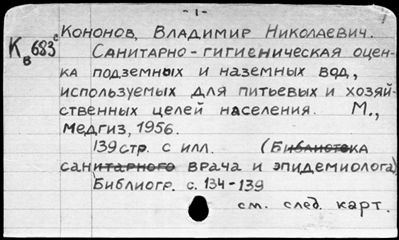 - 1 -
К в 683 с Кононов, Владимир Николаевич.
Санитарно-гигиеническая оцен-
ка подземных и наземных вод,
используемых для питьевых и хозяй-
ственных целей населения. М.,
Медгиз, 1956.
139 стр. с илл. (Библиотека
санитарного врача и эпидемиолога)
Библиогр. с. 134-139
см. след. карт.